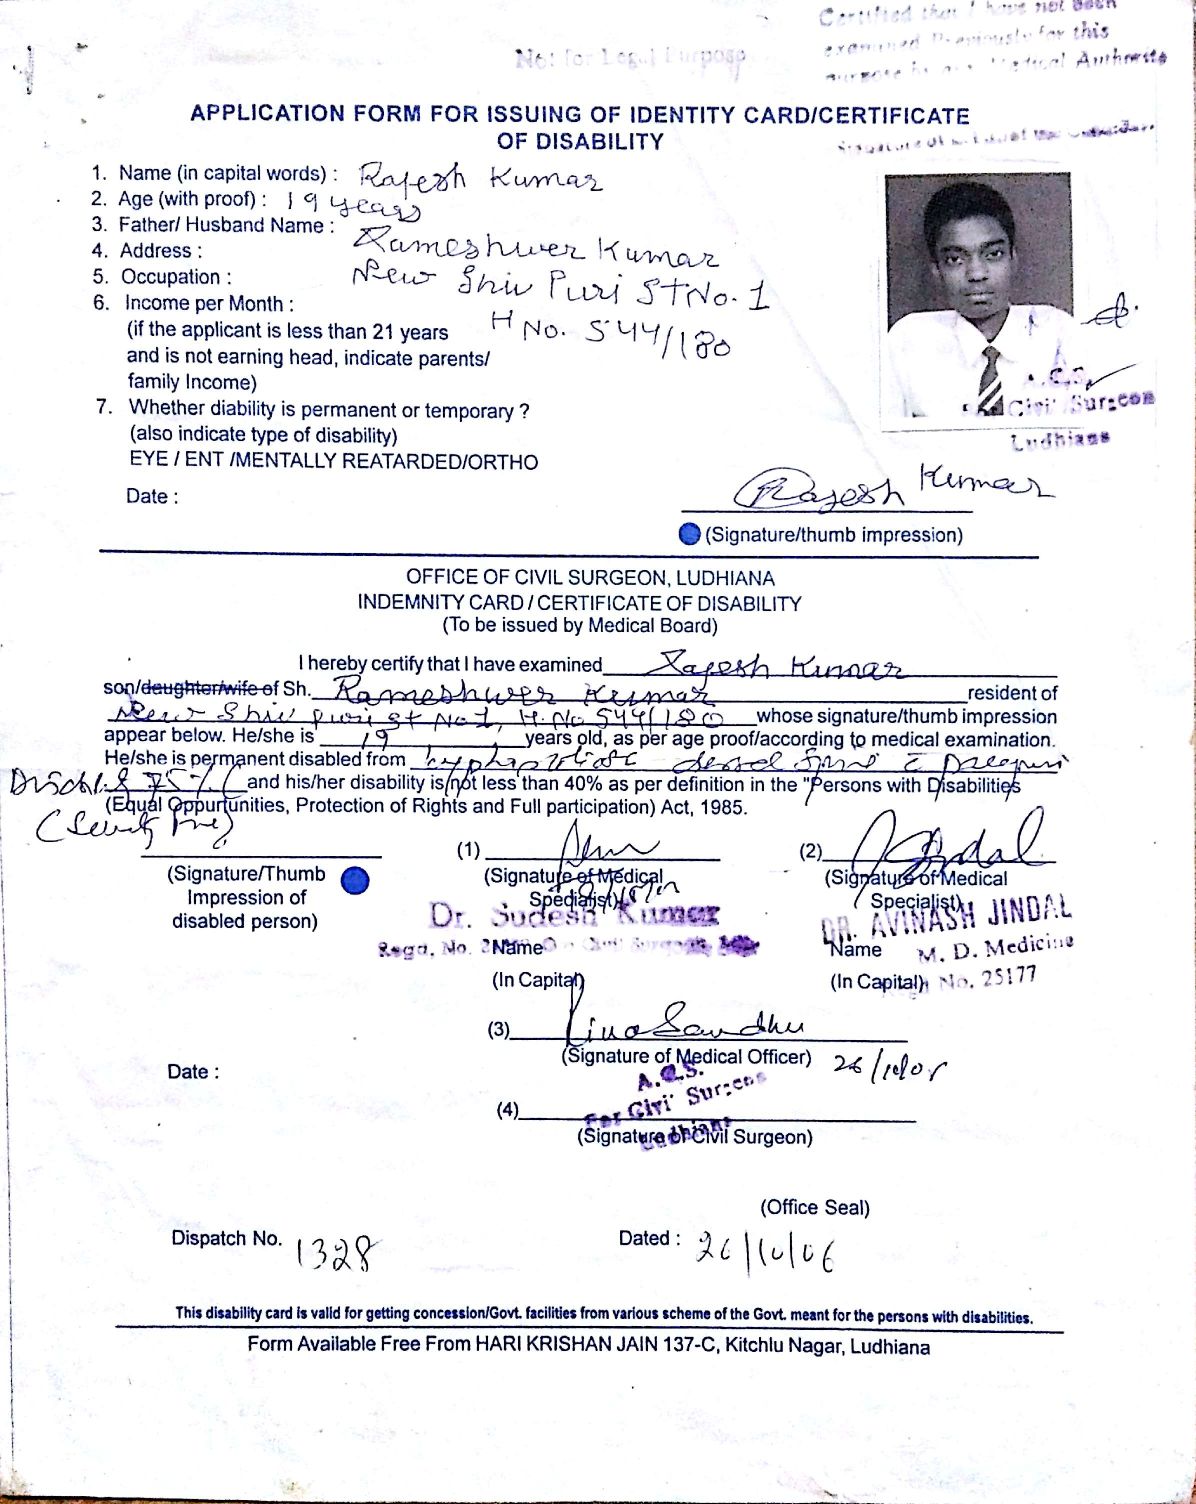 Certified that I have not been
examined Previously for this
purpose by any Medical Authority
Not for Legal Purpose
APPLICATION FORM FOR ISSUING OF IDENTITY CARD/CERTIFICATE
OF DISABILITY
1. Name (in capital words) : Rajesh Kumar
2. Age (with proof) : 19 years
3. Father/ Husband Name : Rameshwer Kumar
4. Address : New Shiv Puri St No. 1
5. Occupation :
6. Income per Month : H No. 544/180
(if the applicant is less than 21 years
and is not earning head, indicate parents/
family Income)
7. Whether diability is permanent or temporary ?
(also indicate type of disability)
EYE / ENT /MENTALLY REATARDED/ORTHO
A.C.S.
Civil Surgeon
Ludhiana
Date :
Rajesh Kumar
(Signature/thumb impression)
OFFICE OF CIVIL SURGEON, LUDHIANA
INDEMNITY CARD / CERTIFICATE OF DISABILITY
(To be issued by Medical Board)
I hereby certify that I have examined Rajesh Kumar
son/deughter/wife of Sh. Rameshwer Kumar resident of
New Shiv puri st No 1, H. No 544/180 whose signature/thumb impression
appear below. He/she is 19 years old, as per age proof/according to medical examination.
He/she is permanent disabled from
75% and his/her disability is/not less than 40% as per definition in the "Persons with Disabilities
(Equal Oppurtunities, Protection of Rights and Full participation) Act, 1985.
(1) (2) Jindal
(Signature/Thumb
Impression of
disabled person)
(Signature of Medical
Specialist)
Dr. Sudesh Kumar
Regd. No.
Name
(In Capital)
(Signature of Medical
Specialist)
DR. AVINASH JINDAL
Name M. D. Medicine
(In Capital) No. 25177
(3) Sandhu
(Signature of Medical Officer)
Date :
A.C.S.
For Civil Surgeon
Ludhiana
(4)
(Signature of Civil Surgeon)
(Office Seal)
Dispatch No. 1328 Dated : 26/10/06
This disability card is valid for getting concession/Govt. facilities from various scheme of the Govt. meant for the persons with disabilities.
Form Available Free From HARI KRISHAN JAIN 137-C, Kitchlu Nagar, Ludhiana